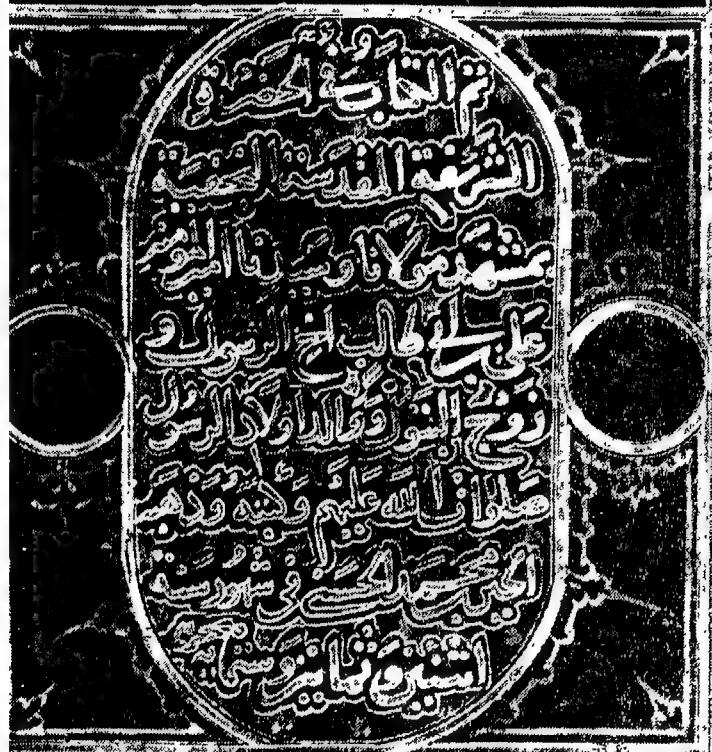 تم الكتاب في الحضرة
الشريفة المقدسة النجفية
بمشهد مولانا وسيدنا أمير المؤمنين
علي بن أبي طالب أخ الرسول و
زوج البتول ووالد أولاد الرسول
صلوات الله عليهم وكتبه وذهبه
الحسين محمد الحسني في شهور سنة
اثنين وثمانين وستمائة